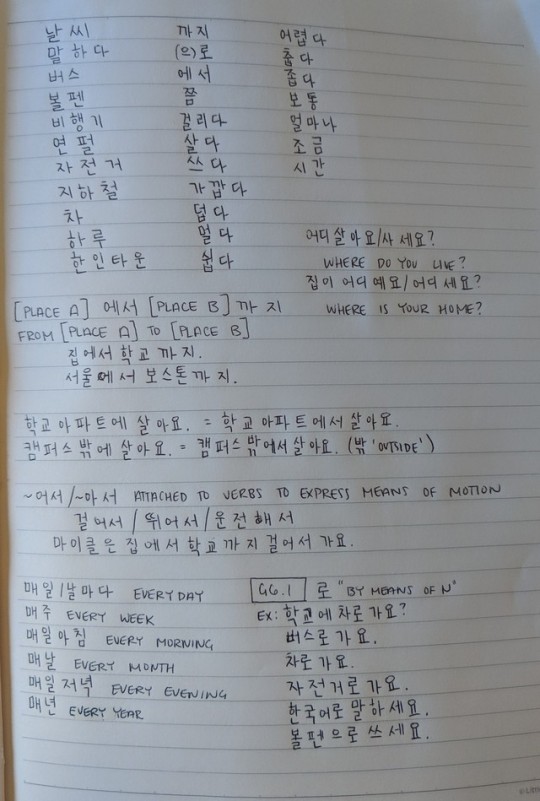 날씨 까지 어렵다
말하다 (으)로 춥다
버스 에서 좁다
볼펜 쯤 보통
비행기 걸리다 얼마나
연필 살다 조금
자전거 쓰다 시간
지하철 가깝다
차 덥다
하루 멀다 어디 살아요/사세요?
한인타운 쉽다 WHERE DO YOU LIVE?
집이 어디예요/어디세요?
[PLACE A] 에서 [PLACE B] 까지 WHERE IS YOUR HOME?
FROM [PLACE A] TO [PLACE B]
집에서 학교까지.
서울에서 보스톤까지.
학교 아파트에 살아요. = 학교 아파트에서 살아요.
캠퍼스 밖에 살아요. = 캠퍼스 밖에서 살아요. (밖 'OUTSIDE')
~어서/~아서 ATTACHED TO VERBS TO EXPRESS MEANS OF MOTION
걸어서 / 뛰어서 / 운전해서
마이클은 집에서 학교까지 걸어서 가요.
매일/날마다 EVERYDAY G6.1 로 "BY MEANS OF N"
매주 EVERY WEEK EX: 학교에 차로 가요?
매일 아침 EVERY MORNING 버스로 가요.
매날 EVERY MONTH 차로 가요.
매일 저녁 EVERY EVENING 자전거로 가요.
매년 EVERY YEAR 한국어로 말하세요.
볼펜으로 쓰세요.